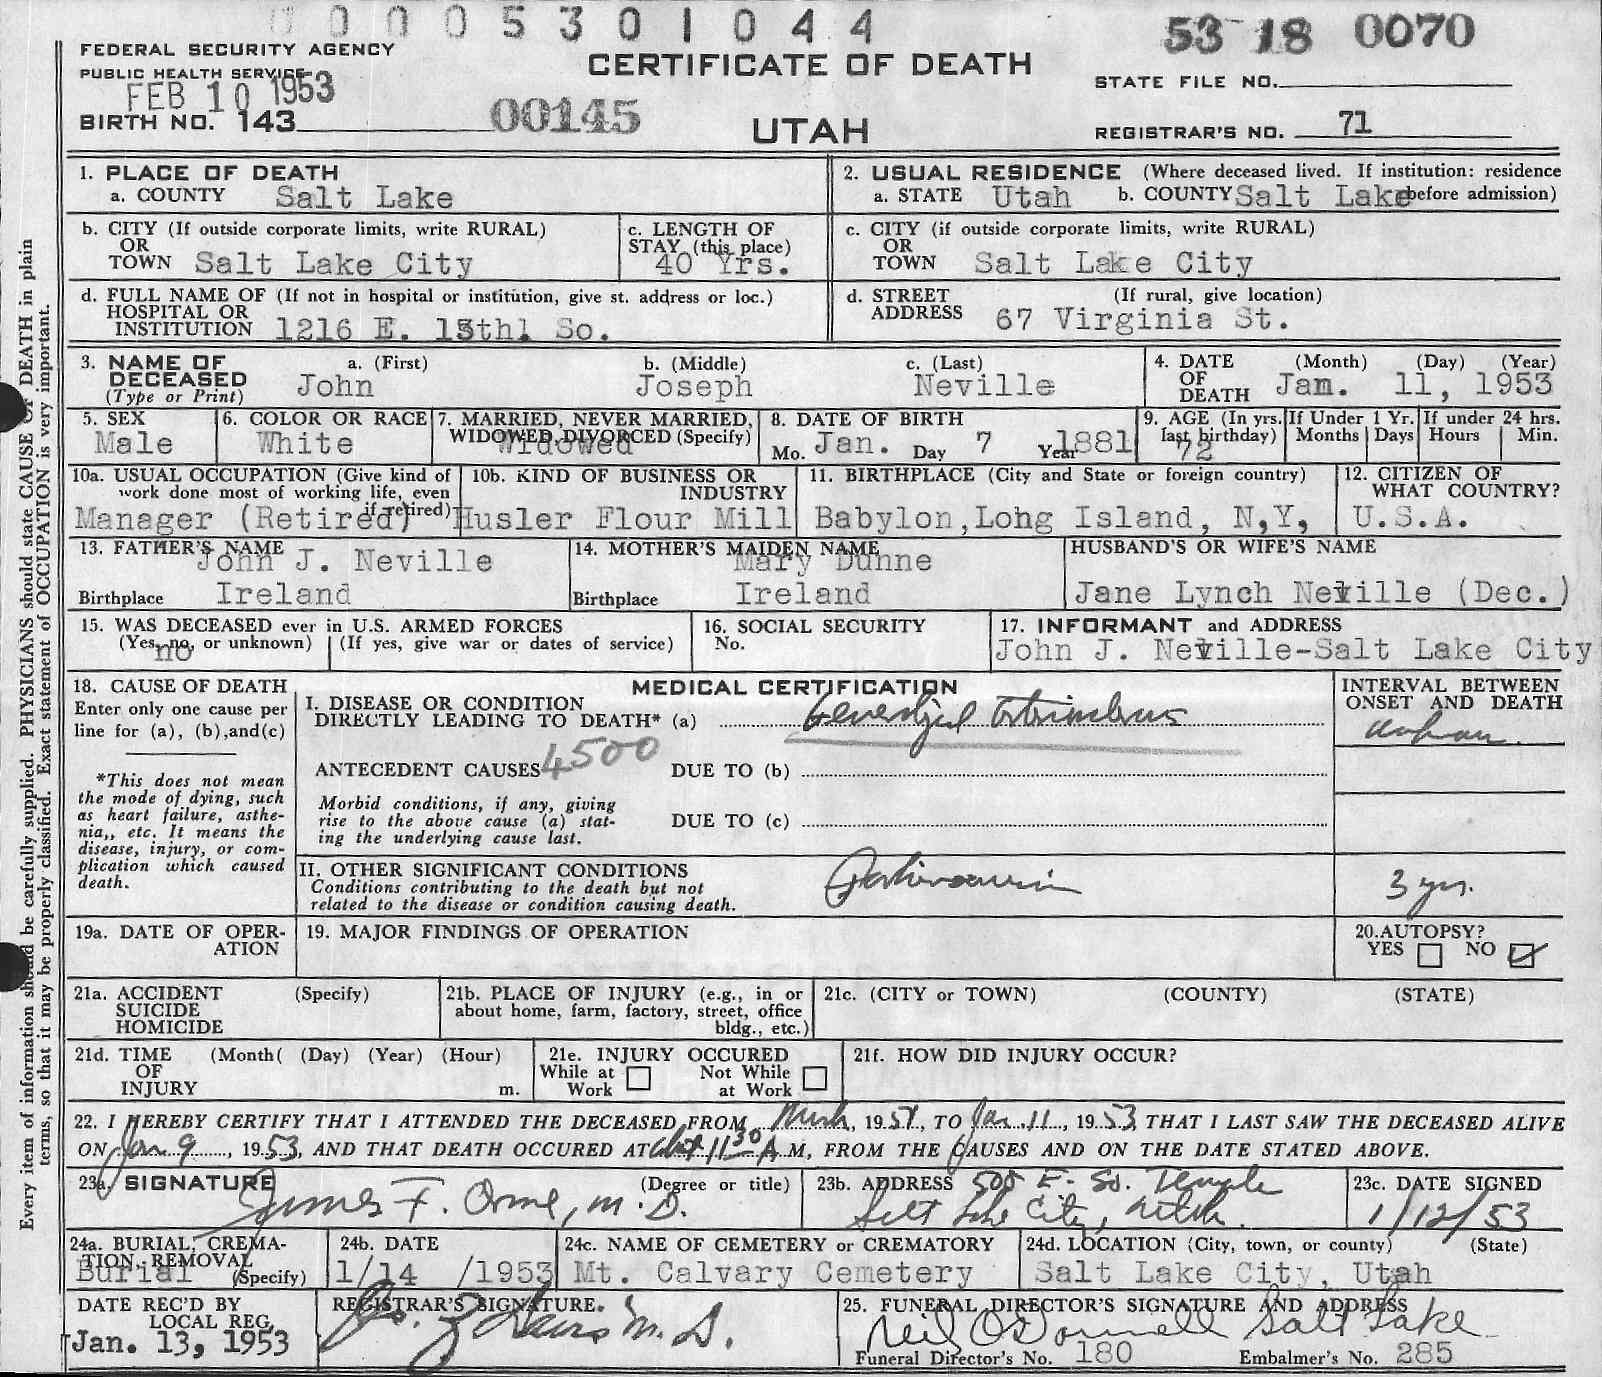 0 0 0 0 5 3 0 1 0 4 4
53 18 0070
FEDERAL SECURITY AGENCY
PUBLIC HEALTH SERVICE
FEB 10 1953
CERTIFICATE OF DEATH
STATE FILE NO.
BIRTH NO. 143
00145
UTAH
REGISTRAR'S NO. 71
1. PLACE OF DEATH
a. COUNTY Salt Lake
2. USUAL RESIDENCE (Where deceased lived. If institution: residence
a. STATE Utah b. COUNTY Salt Lake before admission)
b. CITY (If outside corporate limits, write RURAL)
OR
TOWN Salt Lake City
c. LENGTH OF
STAY (this place)
40 Yrs.
c. CITY (if outside corporate limits, write RURAL)
OR
TOWN Salt Lake City
d. FULL NAME OF (If not in hospital or institution, give st. address or loc.)
HOSPITAL OR
INSTITUTION 1216 E. 13th So.
d. STREET (If rural, give location)
ADDRESS 67 Virginia St.
3. NAME OF a. (First) b. (Middle) c. (Last)
DECEASED John Joseph Neville
(Type or Print)
4. DATE (Month) (Day) (Year)
OF
DEATH Jan. 11, 1953
5. SEX
Male
6. COLOR OR RACE
White
7. MARRIED, NEVER MARRIED,
WIDOWED, DIVORCED (Specify)
Widowed
8. DATE OF BIRTH
Mo. Jan. Day 7 Year 1881
9. AGE (In yrs.
last birthday)
72
If Under 1 Yr.
Months Days
If under 24 hrs.
Hours Min.
10a. USUAL OCCUPATION (Give kind of
work done most of working life, even
if retired)
Manager (Retired)
10b. KIND OF BUSINESS OR
INDUSTRY
Husler Flour Mill
11. BIRTHPLACE (City and State or foreign country)
Babylon, Long Island, N,Y,
12. CITIZEN OF
WHAT COUNTRY?
U.S.A.
13. FATHER'S NAME
John J. Neville
Birthplace Ireland
14. MOTHER'S MAIDEN NAME
Mary Dunne
Birthplace Ireland
HUSBAND'S OR WIFE'S NAME
Jane Lynch Neville (Dec.)
15. WAS DECEASED ever in U.S. ARMED FORCES
(Yes, no, or unknown) (If yes, give war or dates of service)
no
16. SOCIAL SECURITY
No.
17. INFORMANT and ADDRESS
John J. Neville-Salt Lake City
18. CAUSE OF DEATH
Enter only one cause per
line for (a), (b), and (c)
*This does not mean
the mode of dying, such
as heart failure, asthe-
nia,, etc. It means the
disease, injury, or com-
plication which caused
death.
MEDICAL CERTIFICATION
I. DISEASE OR CONDITION
DIRECTLY LEADING TO DEATH* (a)
4500
ANTECEDENT CAUSES DUE TO (b)
Morbid conditions, if any, giving
rise to the above cause (a) stat-
ing the underlying cause last.
DUE TO (c)
INTERVAL BETWEEN
ONSET AND DEATH
II. OTHER SIGNIFICANT CONDITIONS
Conditions contributing to the death but not
related to the disease or condition causing death.
3 yrs.
19a. DATE OF OPER-
ATION
19. MAJOR FINDINGS OF OPERATION
20. AUTOPSY?
YES NO
21a. ACCIDENT (Specify)
SUICIDE
HOMICIDE
21b. PLACE OF INJURY (e.g., in or
about home, farm, factory, street, office
bldg., etc.)
21c. (CITY or TOWN) (COUNTY) (STATE)
21d. TIME (Month( (Day) (Year) (Hour)
OF
INJURY m.
21e. INJURY OCCURED
While at Not While
Work at Work
21f. HOW DID INJURY OCCUR?
22. I HEREBY CERTIFY THAT I ATTENDED THE DECEASED FROM 1951, TO Jan 11, 1953, THAT I LAST SAW THE DECEASED ALIVE
ON Jan 9, 1953, AND THAT DEATH OCCURED AT 11 30 A M, FROM THE CAUSES AND ON THE DATE STATED ABOVE.
23a. SIGNATURE (Degree or title)
James F. Orme, M.D.
23b. ADDRESS 508 E. So. Temple
Salt Lake City, Utah.
23c. DATE SIGNED
1/12/53
24a. BURIAL, CREMA-
TION, REMOVAL
Burial (Specify)
24b. DATE
1/14 /1953
24c. NAME OF CEMETERY or CREMATORY
Mt. Calvary Cemetery
24d. LOCATION (City, town, or county) (State)
Salt Lake City, Utah
DATE REC'D BY
LOCAL REG.
Jan. 13, 1953
REGISTRAR'S SIGNATURE.
M.D.
25. FUNERAL DIRECTOR'S SIGNATURE AND ADDRESS
Neil O'Donnell Salt Lake
Funeral Director's No. 180 Embalmer's No. 285
Every item of information should be carefully supplied. PHYSICIANS should state CAUSE OF DEATH in plain
terms, so that it may be properly classified. Exact statement of OCCUPATION is very important.